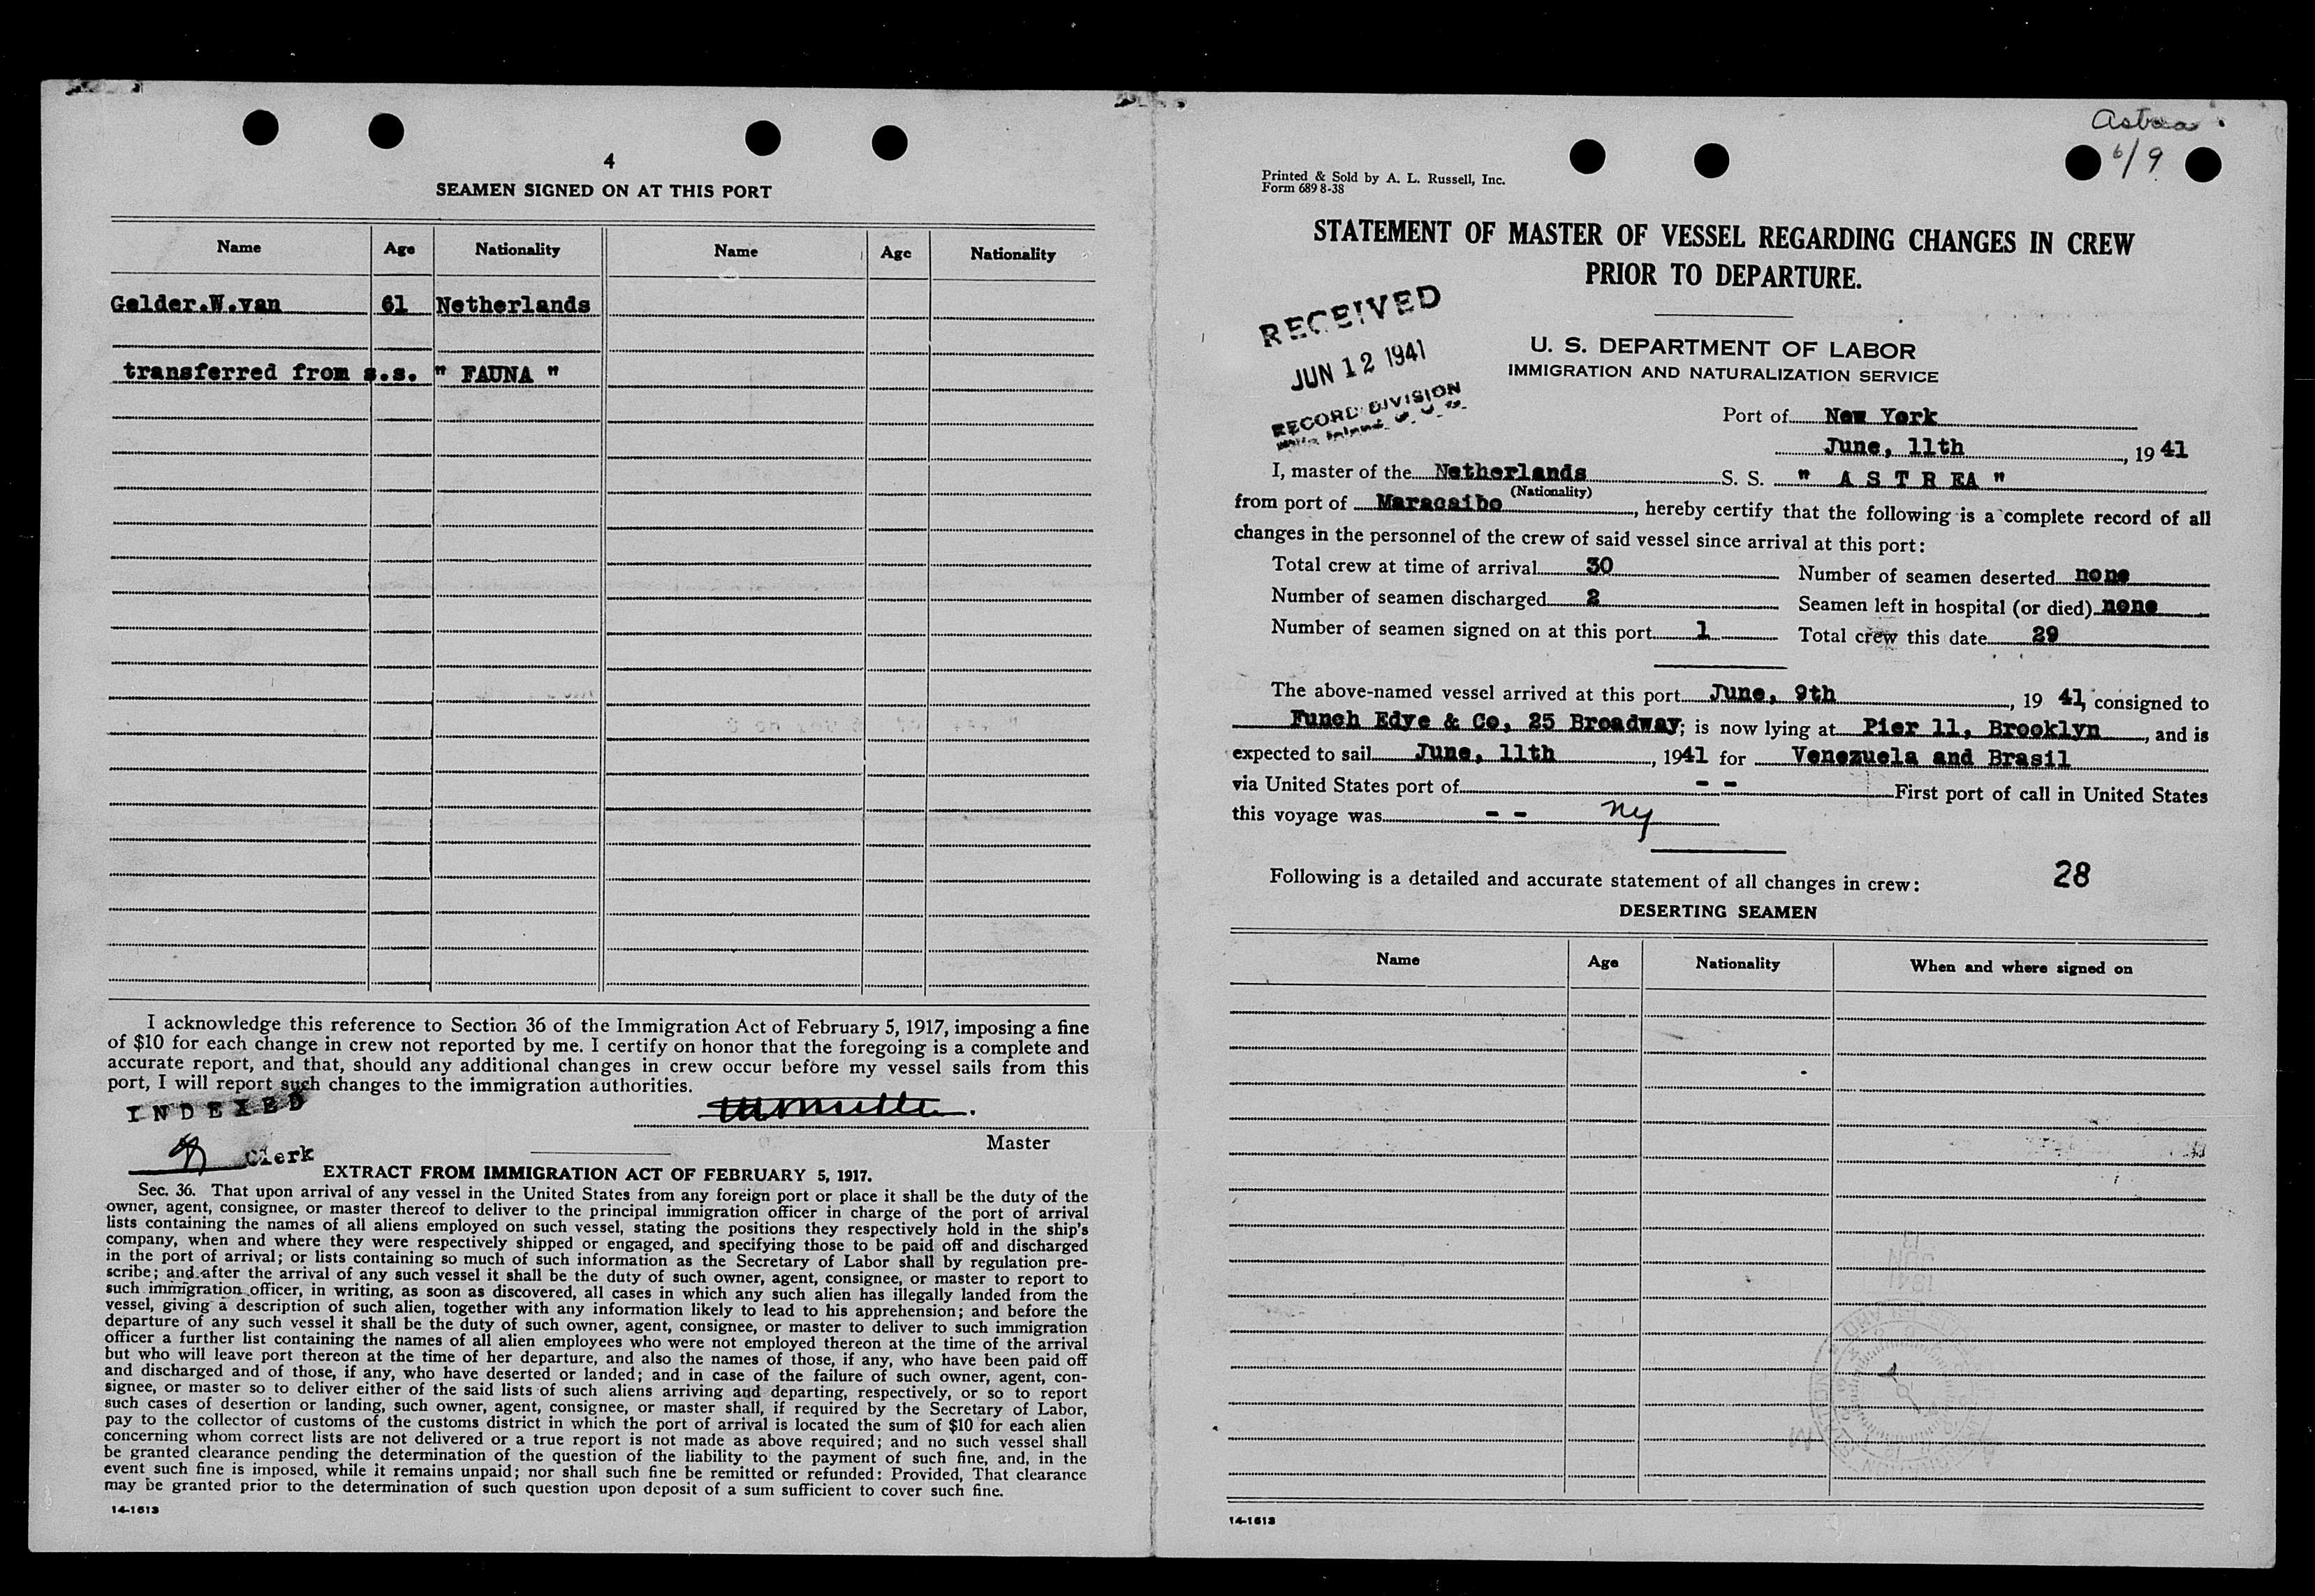 4
SEAMEN SIGNED ON AT THIS PORT
Name Age Nationality Name Age Nationality
Gelder.W.van 61 Netherlands
transferred from s.s. " FAUNA "
I acknowledge this reference to Section 36 of the Immigration Act of February 5, 1917, imposing a fine
of $10 for each change in crew not reported by me. I certify on honor that the foregoing is a complete and
accurate report, and that, should any additional changes in crew occur before my vessel sails from this
port, I will report such changes to the immigration authorities.
INDEXED
Master
Clerk
EXTRACT FROM IMMIGRATION ACT OF FEBRUARY 5, 1917.
Sec. 36. That upon arrival of any vessel in the United States from any foreign port or place it shall be the duty of the
owner, agent, consignee, or master thereof to deliver to the principal immigration officer in charge of the port of arrival
lists containing the names of all aliens employed on such vessel, stating the positions they respectively hold in the ship's
company, when and where they were respectively shipped or engaged, and specifying those to be paid off and discharged
in the port of arrival; or lists containing so much of such information as the Secretary of Labor shall by regulation pre-
scribe; and after the arrival of any such vessel it shall be the duty of such owner, agent, consignee, or master to report to
such immigration officer, in writing, as soon as discovered, all cases in which any such alien has illegally landed from the
vessel, giving a description of such alien, together with any information likely to lead to his apprehension; and before the
departure of any such vessel it shall be the duty of such owner, agent, consignee, or master to deliver to such immigration
officer a further list containing the names of all alien employees who were not employed thereon at the time of the arrival
but who will leave port thereon at the time of her departure, and also the names of those, if any, who have been paid off
and discharged and of those, if any, who have deserted or landed; and in case of the failure of such owner, agent, con-
signee, or master so to deliver either of the said lists of such aliens arriving and departing, respectively, or so to report
such cases of desertion or landing, such owner, agent, consignee, or master shall, if required by the Secretary of Labor,
pay to the collector of customs of the customs district in which the port of arrival is located the sum of $10 for each alien
concerning whom correct lists are not delivered or a true report is not made as above required; and no such vessel shall
be granted clearance pending the determination of the question of the liability to the payment of such fine, and, in the
event such fine is imposed, while it remains unpaid; nor shall such fine be remitted or refunded: Provided, That clearance
may be granted prior to the determination of such question upon deposit of a sum sufficient to cover such fine.
14-1613
Astrea
6/9
Printed & Sold by A. L. Russell, Inc.
Form 689 8-38
STATEMENT OF MASTER OF VESSEL REGARDING CHANGES IN CREW
PRIOR TO DEPARTURE.
RECEIVED
JUN 12 1941
RECORD DIVISION
U. S. DEPARTMENT OF LABOR
IMMIGRATION AND NATURALIZATION SERVICE
Port of New York
June, 11th, 1941
I, master of the Netherlands S. S. " A S T R EA "
(Nationality)
from port of Maracaibo, hereby certify that the following is a complete record of all
changes in the personnel of the crew of said vessel since arrival at this port:
Total crew at time of arrival 30 Number of seamen deserted none
Number of seamen discharged 2 Seamen left in hospital (or died) none
Number of seamen signed on at this port 1 Total crew this date 29
The above-named vessel arrived at this port June, 9th, 19 41, consigned to
Funch Edye & Co, 25 Broadway; is now lying at Pier 11, Brooklyn, and is
expected to sail June, 11th, 1941 for Venezuela and Brasil
via United States port of - - First port of call in United States
this voyage was - - ny
Following is a detailed and accurate statement of all changes in crew: 28
DESERTING SEAMEN
Name Age Nationality When and where signed on
14-1613